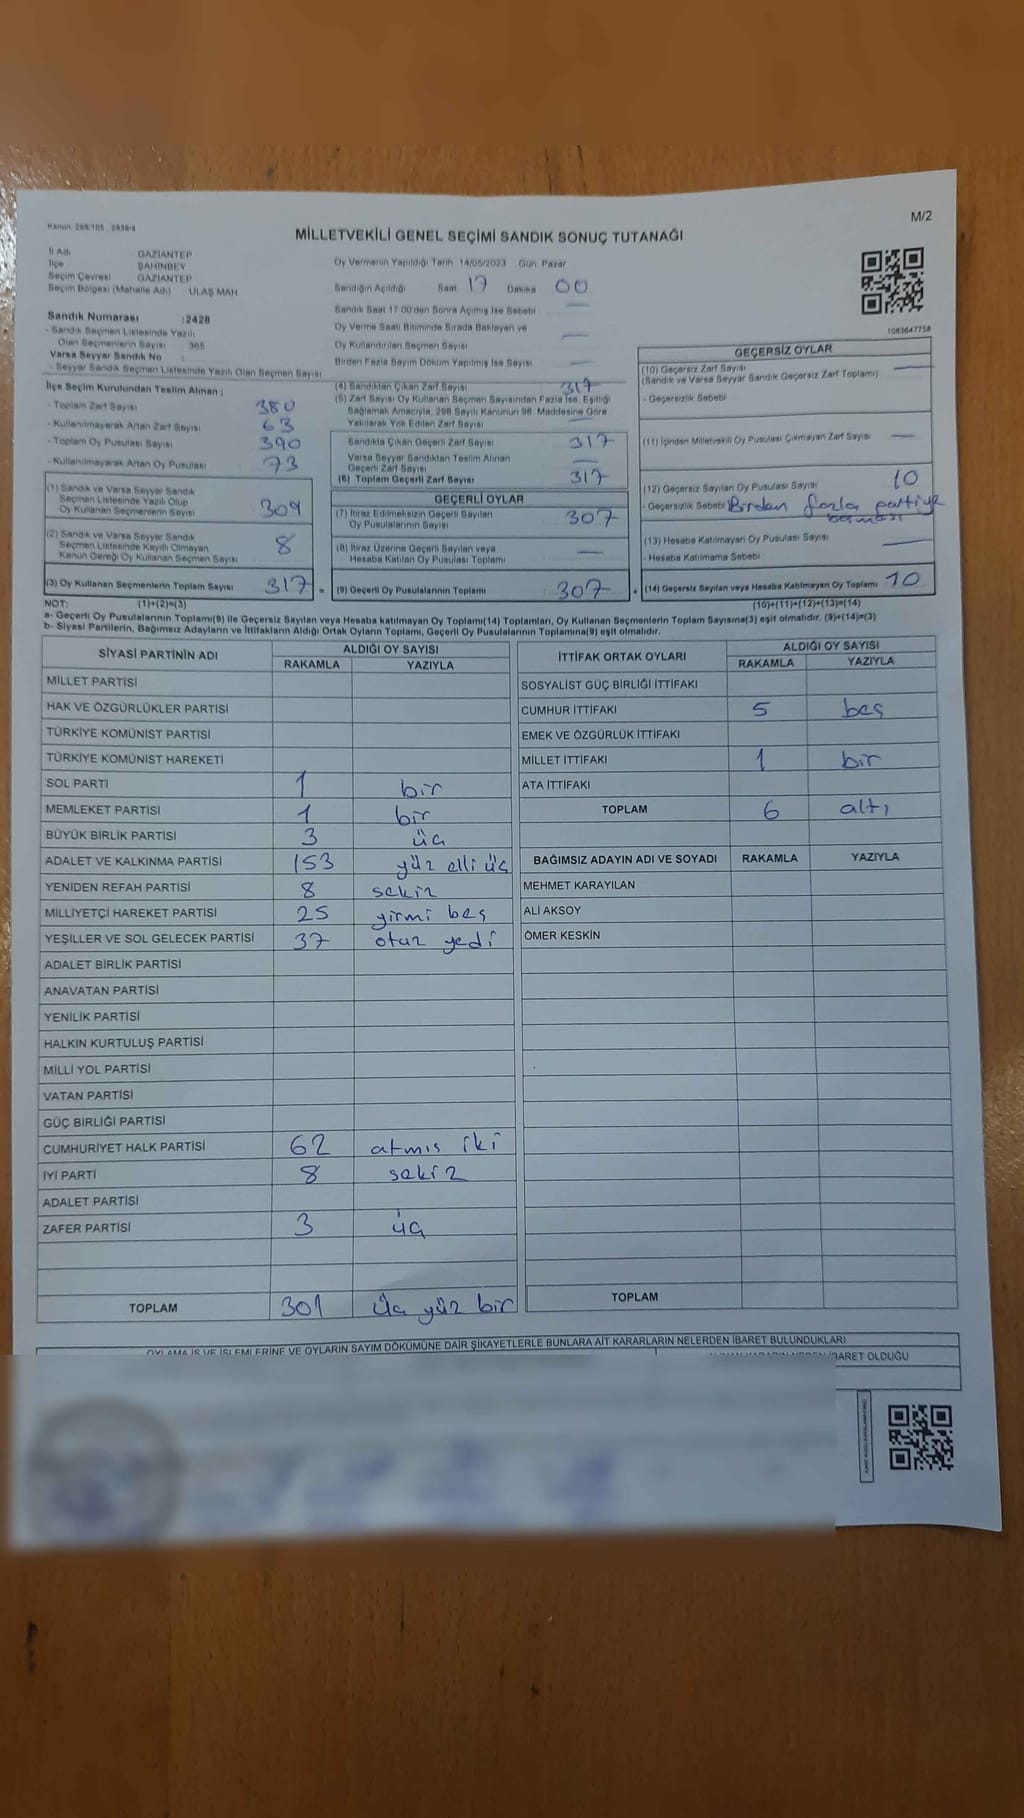 Kanun: 298/105 , 2839/4
M/2
MİLLETVEKİLİ GENEL SEÇİMİ SANDIK SONUÇ TUTANAĞI
İl Adı : GAZİANTEP
İlçe : ŞAHİNBEY
Seçim Çevresi : GAZİANTEP
Seçim Bölgesi (Mahalle Adı) : ULAŞ MAH
Sandık Numarası :2428
- Sandık Seçmen Listesinde Yazılı
Olan Seçmenlerin Sayısı : 365
Varsa Seyyar Sandık No :
- Seyyar Sandık Seçmen Listesinde Yazılı Olan Seçmen Sayısı
Oy Vermenin Yapıldığı Tarih :14/05/2023 Gün: Pazar
Sandığın Açıldığı Saat: 17 Dakika 00
Sandık Saat 17.00'den Sonra Açımış İse Sebebi
Oy Verme Saati Bitiminde Sırada Bekleyen ve —
Oy Kullandırılan Seçmen Sayısı
Birden Fazla Sayım Döküm Yapılmış İse Sayısı —
1083647758
İlçe Seçim Kurulundan Teslim Alınan ;
- Toplam Zarf Sayısı 380
- Kullanılmayarak Artan Zarf Sayısı 63
- Toplam Oy Pusulası Sayısı 390
- Kullanılmayarak Artan Oy Pusulası 73
(1) Sandık ve Varsa Seyyar Sandık
Seçmen Listesinde Yazılı Olup
Oy Kullanan Seçmenlerin Sayısı 309
(2) Sandık ve Varsa Seyyar Sandık
Seçmen Listesinde Kayıtlı Olmayan
Kanun Gereği Oy Kullanan Seçmen Sayısı 8
(3) Oy Kullanan Seçmenlerin Toplam Sayısı 317 =
(4) Sandıktan Çıkan Zarf Sayısı 317
(5) Zarf Sayısı Oy Kullanan Seçmen Sayısından Fazla İse, Eşitliği
Sağlamak Amacıyla, 298 Sayılı Kanunun 98. Maddesine Göre
Yakılarak Yok Edilen Zarf Sayısı —
Sandıkta Çıkan Geçerli Zarf Sayısı 317
Varsa Seyyar Sandıktan Teslim Alınan
Geçerli Zarf Sayısı —
(6) Toplam Geçerli Zarf Sayısı 317
GEÇERLİ OYLAR
(7) İtiraz Edilmeksizin Geçerli Sayılan
Oy Pusulalarının Sayısı 307
(8) İtiraz Üzerine Geçerli Sayılan veya
Hesaba Katılan Oy Pusulası Toplamı —
(9) Geçerli Oy Pusulalarının Toplamı 307 +
GEÇERSİZ OYLAR
(10) Geçersiz Zarf Sayısı —
(Sandık ve Varsa Seyyar Sandık Geçersiz Zarf Toplamı)
- Geçersizlik Sebebi
(11) İçinden Milletvekili Oy Pusulası Çıkmayan Zarf Sayısı —
(12) Geçersiz Sayılan Oy Pusulası Sayısı 10
- Geçersizlik Sebebi Birden fazla partiye
basması
(13) Hesaba Katılmayan Oy Pusulası Sayısı —
- Hesaba Katılmama Sebebi
(14) Geçersiz Sayılan veya Hesaba Katılmayan Oy Toplamı 10
NOT: (1)+(2)=(3)
(10)+(11)+(12)+(13)=(14)
a- Geçerli Oy Pusulalarının Toplamı(9) ile Geçersiz Sayılan veya Hesaba katılmayan Oy Toplamı(14) Toplamları, Oy Kullanan Seçmenlerin Toplam Sayısına(3) eşit olmalıdır. (9)+(14)=(3)
b- Siyasi Partilerin, Bağımsız Adayların ve İttifakların Aldığı Ortak Oyların Toplamı, Geçerli Oy Pusulalarının Toplamına(9) eşit olmalıdır.
SİYASİ PARTİNİN ADI ALDIĞI OY SAYISI
RAKAMLA YAZIYLA
MİLLET PARTİSİ
HAK VE ÖZGÜRLÜKLER PARTİSİ
TÜRKİYE KOMÜNİST PARTİSİ
TÜRKİYE KOMÜNİST HAREKETİ
SOL PARTİ 1 bir
MEMLEKET PARTİSİ 1 bir
BÜYÜK BİRLİK PARTİSİ 3 üç
ADALET VE KALKINMA PARTİSİ 153 yüz elli üç
YENİDEN REFAH PARTİSİ 8 sekiz
MİLLİYETÇİ HAREKET PARTİSİ 25 yirmi beş
YEŞİLLER VE SOL GELECEK PARTİSİ 37 otuz yedi
ADALET BİRLİK PARTİSİ
ANAVATAN PARTİSİ
YENİLİK PARTİSİ
HALKIN KURTULUŞ PARTİSİ
MİLLİ YOL PARTİSİ
VATAN PARTİSİ
GÜÇ BİRLİĞİ PARTİSİ
CUMHURİYET HALK PARTİSİ 62 atmıs iki
İYİ PARTİ 8 sekiz
ADALET PARTİSİ
ZAFER PARTİSİ 3 üç
TOPLAM 301 üç yüz bir
İTTİFAK ORTAK OYLARI ALDIĞI OY SAYISI
RAKAMLA YAZIYLA
SOSYALİST GÜÇ BİRLİĞİ İTTİFAKI
CUMHUR İTTİFAKI 5 beş
EMEK VE ÖZGÜRLÜK İTTİFAKI
MİLLET İTTİFAKI 1 bir
ATA İTTİFAKI
TOPLAM 6 altı
BAĞIMSIZ ADAYIN ADI VE SOYADI RAKAMLA YAZIYLA
MEHMET KARAYILAN
ALİ AKSOY
ÖMER KESKİN
TOPLAM
OYLAMA İŞ VE İŞLEMLERİNE VE OYLARIN SAYIM DÖKÜMÜNE DAİR ŞİKAYETLERLE BUNLARA AİT KARARLARIN NELERDEN İBARET BULUNDUKLARI
İBARET OLDUĞU